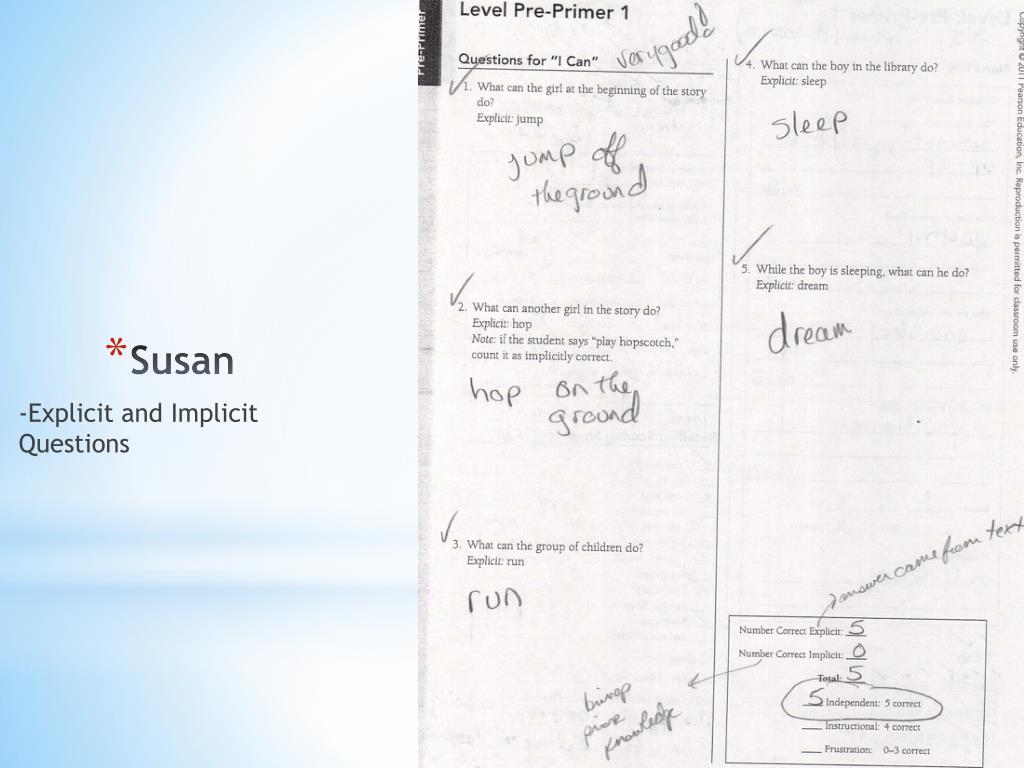 *Susan
-Explicit and Implicit
Questions
Pre-Primer
Level Pre-Primer 1
Questions for "I Can"
very good!
1. What can the girl at the beginning of the story
do?
Explicit: jump
jump off
the ground
2. What can another girl in the story do?
Explicit: hop
Note: if the student says "play hopscotch,"
count it as implicitly correct.
hop on the
ground
3. What can the group of children do?
Explicit: run
run
4. What can the boy in the library do?
Explicit: sleep
sleep
5. While the boy is sleeping, what can he do?
Explicit: dream
dream
answer came from text
Number Correct Explicit: 5
Number Correct Implicit: 0
Total: 5
5 Independent: 5 correct
Instructional: 4 correct
Frustration: 0–3 correct
brings
prior
knowledge
Copyright © 2011 Pearson Education, Inc. Reproduction is permitted for classroom use only.